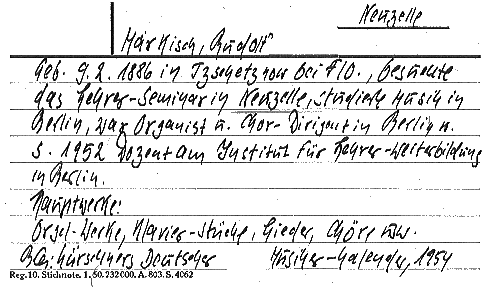 Neuzelle
Märkisch, Rudolf
Geb. 9.2. 1886 in Tzschetznow bei F/O., besuchte
das Lehrer-Seminar in Neuzelle, studierte Musik in
Berlin, war Organist u. Chor-Dirigent in Berlin u.
s. 1952 Dozent am Institut für Lehrer-Weiterbildung
in Berlin.
Hauptwerke:
Orgel-Werke, Klavier-Stücke, Lieder, Chöre usw.
Kürschners Deutscher Musiker-Kalender, 1954
Reg. 10. Stichnote. 1,60. 232000. A. 803. S. 4062